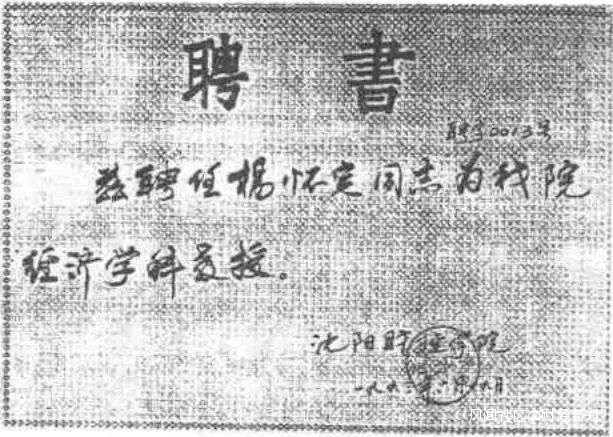 聘書
聘字0013号
兹聘任楊怀定同志为我院
经济学科教授。
沈阳财经学院